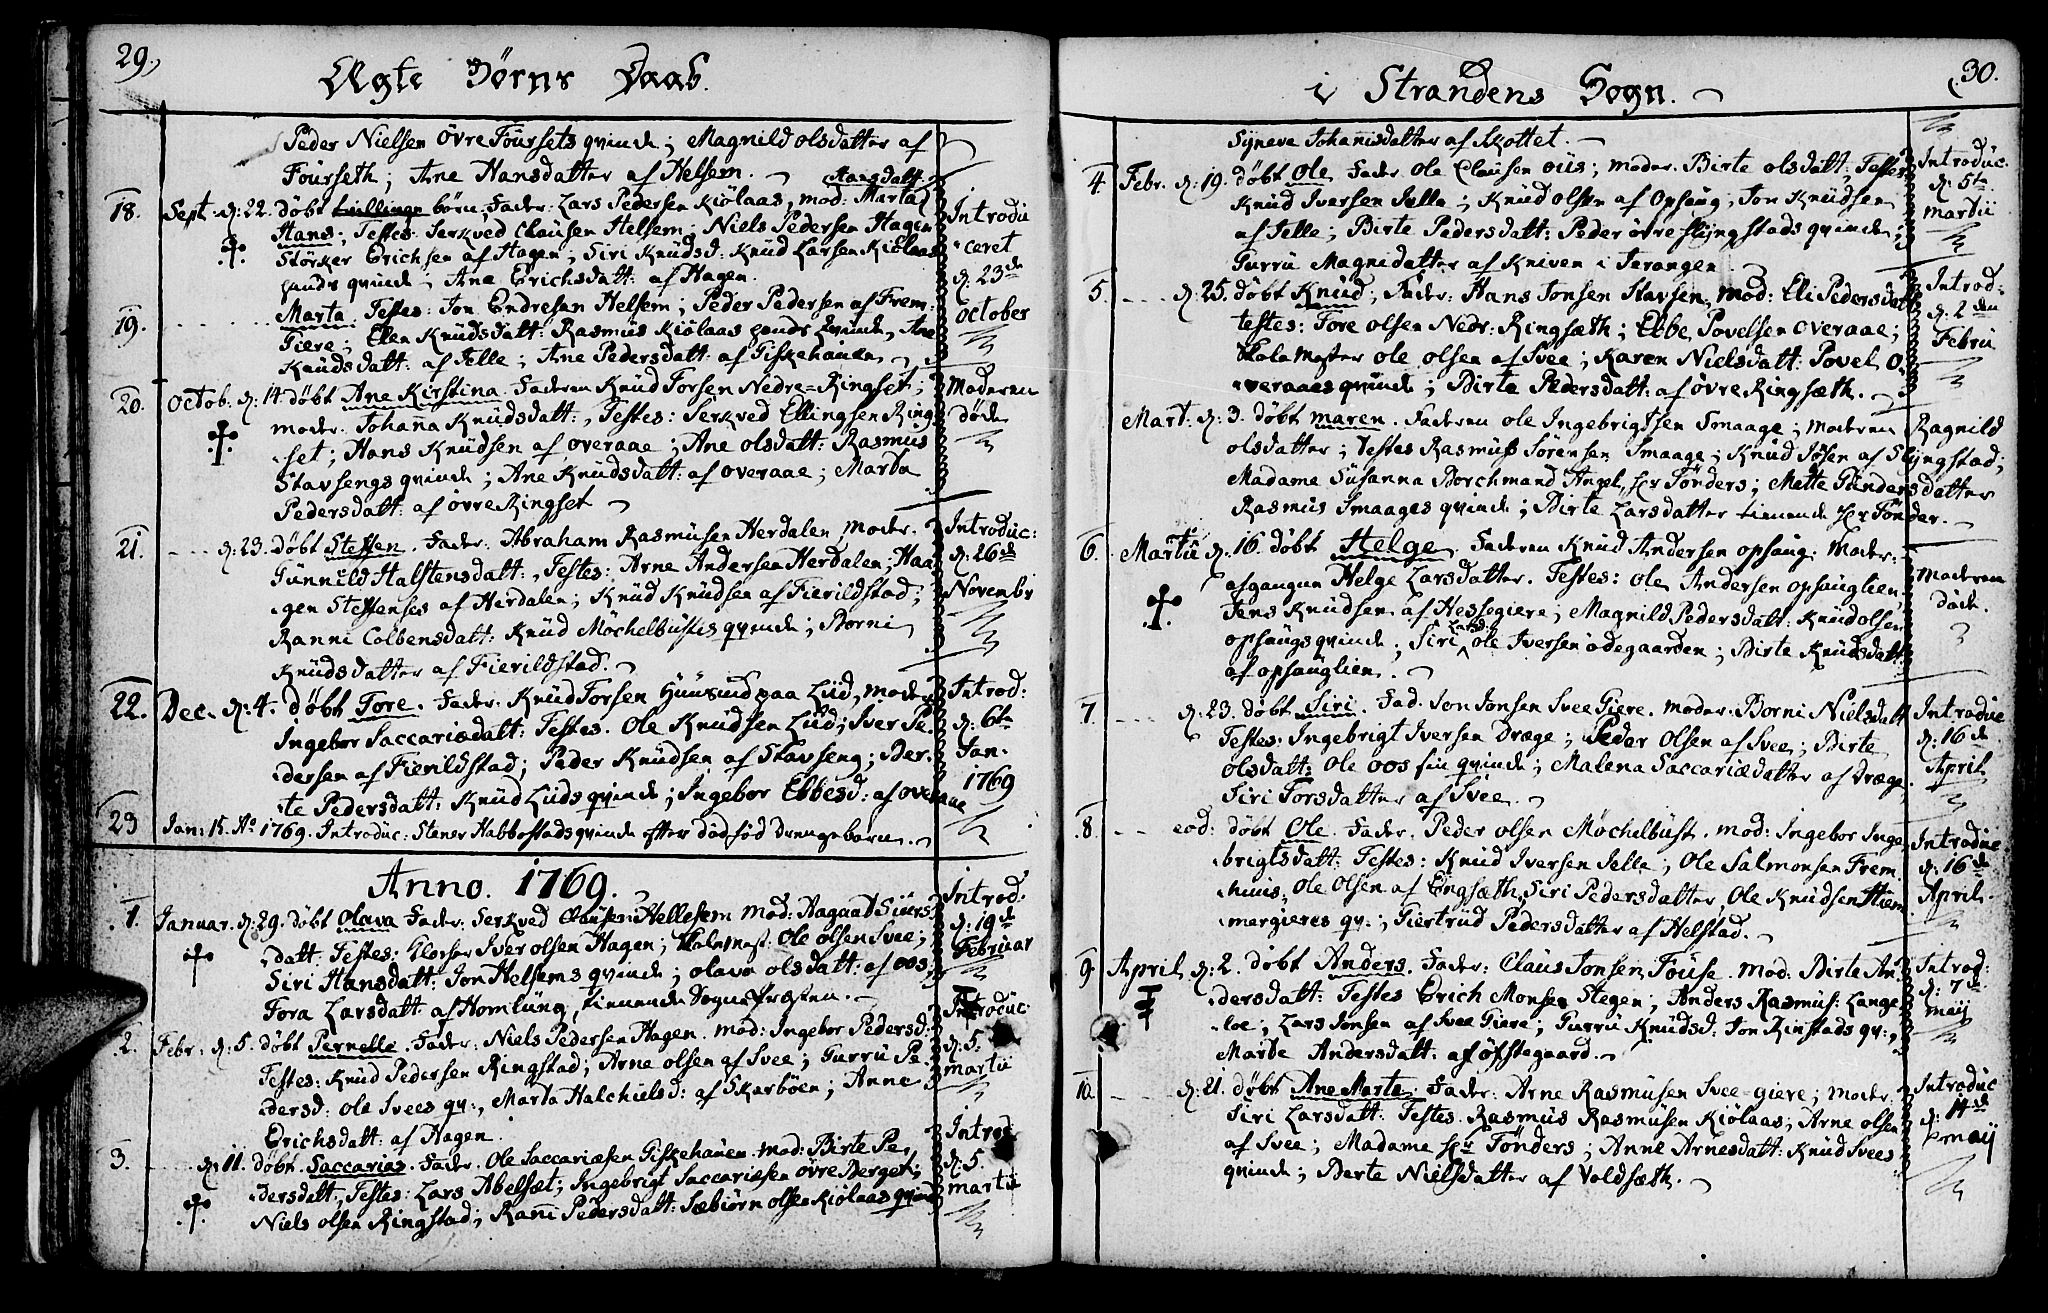 29.
Ægte Børns Daab.
Peder Nielsen Øvre Foursets qvinde; Magnild olsdatter af
Fourseth; Ane Hansdatter af Helsem.
Hansdatt.
18. Sept. d: 22. døbt tvillinge børn, Fader: Lars Pedersen Kiölaas, mod: Marta
Introdu
Hans; Testes: Serkved Clausen Helsem; Niels Pedersen Hagen
Störker Erichsen af Hagen; Siri Knudsd: Knud Larsen Kiölaas
ceret
hands qvinde, Ane Erichsdatt: af Hagen.
d: 23de
19. Marta. Testes: Jon Endresen Helsem; Peder Pedersen af Frem-
october
Giere; Elen Knudsdatt: Rasmus Kiölaas hands qvinde, Ane
Knudsdatt: af Jelle; Ane Pedersdatt: af Giskehauen
20. Octob. d: 14 døbt Ane Kirstina. Faderen Knud Torsen Nedre=Ringset;
Moderen
moder: Johana Knudsdatt:, Testes: Serkved Ellingsen Ring-
døde
set; Hans Knudsen af overaae; Ane olsdatt: Rasmus
Stavsengs qvinde; Ane Knudsdatt: af overaae; Marta
Pedersdatt: af øvre Ringset
21. --- d: 23. døbt Steffen. Fader: Abraham Rasmusen Herdalen, moder:
Introduc:
Gunnild Halstensdatt:, Testes: Arne Andersen Herdalen; Haa-
d: 26de
gen Steffenses af Herdalen; Knud Knudsen af Fierildstad;
Novembr
Ranni Colbensdatt: Knud Möchelbusts qvinde; Borni
Knudsdatter af Fierildstad.
22. Dec. d: 4. døbt Tore. Fader: Knud Torsen Huusmd paa Liid, moder
Introd:
Ingebor Saccariædatt: Testes. Ole Knudsen Liid; Iver Pe-
d: 6te
dersen af Fierildstad; Peder Knudsen af Stavseng; Ber-
Jan.
te Pedersdatt: Knud Liids qvinde; Ingebor Ebbesd: af overaae
1769
23 Jan: 15. Ao 1769. Introduc: Stener Habbostads qvinde efter dødfød Drengebarn.
Anno. 1769.
1. Januar. d: 29. døbt Olava Fader: Serkved Clausen Hellesem mod: Aagaat Siurs
Introd:
datt: Testes: Klocker Iver olsen Hagen; Skolemest: Ole olsen Svee;
d: 19de
Siri Hansdatt: Jon Helsems qvinde; olava olsdatt: af oos;
Februar
Tora Larsdatt: af Homlung, tienende Sogne Præsten.
2. Febr. d: 5. døbt Pernelle. Fader: Niels Pedersen Hagen. mod: Ingebor Pedersd:
Introduc:
Testes: Knud Pedersen Ringstad; Arne olsen af Svee; Gurru Pe-
d: 5.
dersd: ole Svees qv:, Marta Halchielsd: af Skarböen; Anne
martii
Erichsdatt: af Hagen.
3. --- d: 11. døbt Saccarias. Fader: Ole Saccariæsen Giskehauen. mod: Birte Pe-
Introd
dersdatt:, Testes: Lars Abelsæt; Ingebrigt Saccariæsen øvre Berget;
d: 5.
Niels olsen Ringstad; Rañi Pedersdatt: Sæbiörn olsen Kiölaas qvinde
martii
30.
i Strandens Sogn.
Syneve Johanisdatter af Skottet.
4 Febr. d: 19. døbt Ole. Fader: Ole Clausen Øiis; moder. Birte olsdatt: Testes
Introduc.
Knud Iversen Jelle; Knud olsen af Opsaug; Jon Knudsen
d: 5te
af Jelle; Birte Pedersdatt: Peder øvre Slyngstads qvinde;
martii
Gurru Magnidatter af Kniven i Jerangen
5. --- d: 25. døbt Knud, Fader: Hans Jonsen Stavsen, mod: Eli Pedersdatt
Introd:
testes: Tore olsen Nedr: Ringsæth; Ebbe Povelsen overaae;
d: 2den
Skole Mester ole olsen af Svee; Karen Nielsdatt: Povel O-
Febru
veraaes qvinde; Birte Pedersdatt: af øvre Ringsæth.
Mart. d: 3. døbt maren. Faderen ole Ingebrigtsen Smaage; moderen Ragnild
olsdatter; Testes Rasmus Sörensen Smaage; Knud Josen af Slyngstad;
Madame Susanna Borchmand Angel, Hr Tönders; Mette Gundersdatter
Rasmus Smaages qvinde; Birte Larsdatter tienende Hr Tönder.
6. Martii d: 16. døbt Helge. Faderen Knud Andersen opsaug. Moder:
afgangen Helge Larsdatter. Testes: Ole Andersen opsauglien,
Moderen
Jens Knudsen af Hessegiere; Magnild Pedersdatt: Knud olsen
døde.
opsaugs qvinde; Siri Larsd: ole Iversen ødegaarden; Birte Knudsdatt:
af opsauglien.
7. --- d: 23. døbt Siri. Fad. Jon Jonsen Svee Giere. moder. Borni Nielsdatt
Introduc
Testes: Ingebrigt Iversen Dræge; Peder Olsen af Svee; Birte
d: 16de
olsdatt: Ole oos sin qvinde; Malena Saccariædatter af Dræge,
April
Siri Torsdatter af Svee.
8. --- eod: døbt Ole. Fader. Peder olsen Möchelbust. mod: Ingebor Inge-
Introduc
brigtsdatt: Testes: Knud Iversen Jelle; Ole Salmonsen Frem-
d: 16de
huus, Ole Olsen af Engsæth, Siri Pedersdatter Ole Knudsen Hiem
April.
mergieres qv:; Giertrud Pedersdatter af Helstad.
9. April d: 2. døbt Anders. Fader: Claus Jonsen Fouse. mod: Birte An-
Introd:
dersdatt: Testes Erich Monsen Stegen; Anders Rasmus: Lange-
d: 7de
loe; Lars Jonsen af Svee Giere; Gurru Knudsd: Jon Ringstads qv:,
maij
Marte Andersdatt: af öfstegaard.
10. --- d: 21. døbt Ane Marta. Fader: Arne Rasmusen Svee-giere; moder.
Introduc
Siri Larsdatt: Testes. Rasmus Rasmusen Kiölaas; Arne olsen
d: 14de
af Svee; Madame Hr Tönders; Anne Arnesdatt: Knud Svees
maij
qvinde; Berte Nielsdatter af Voldsæth.